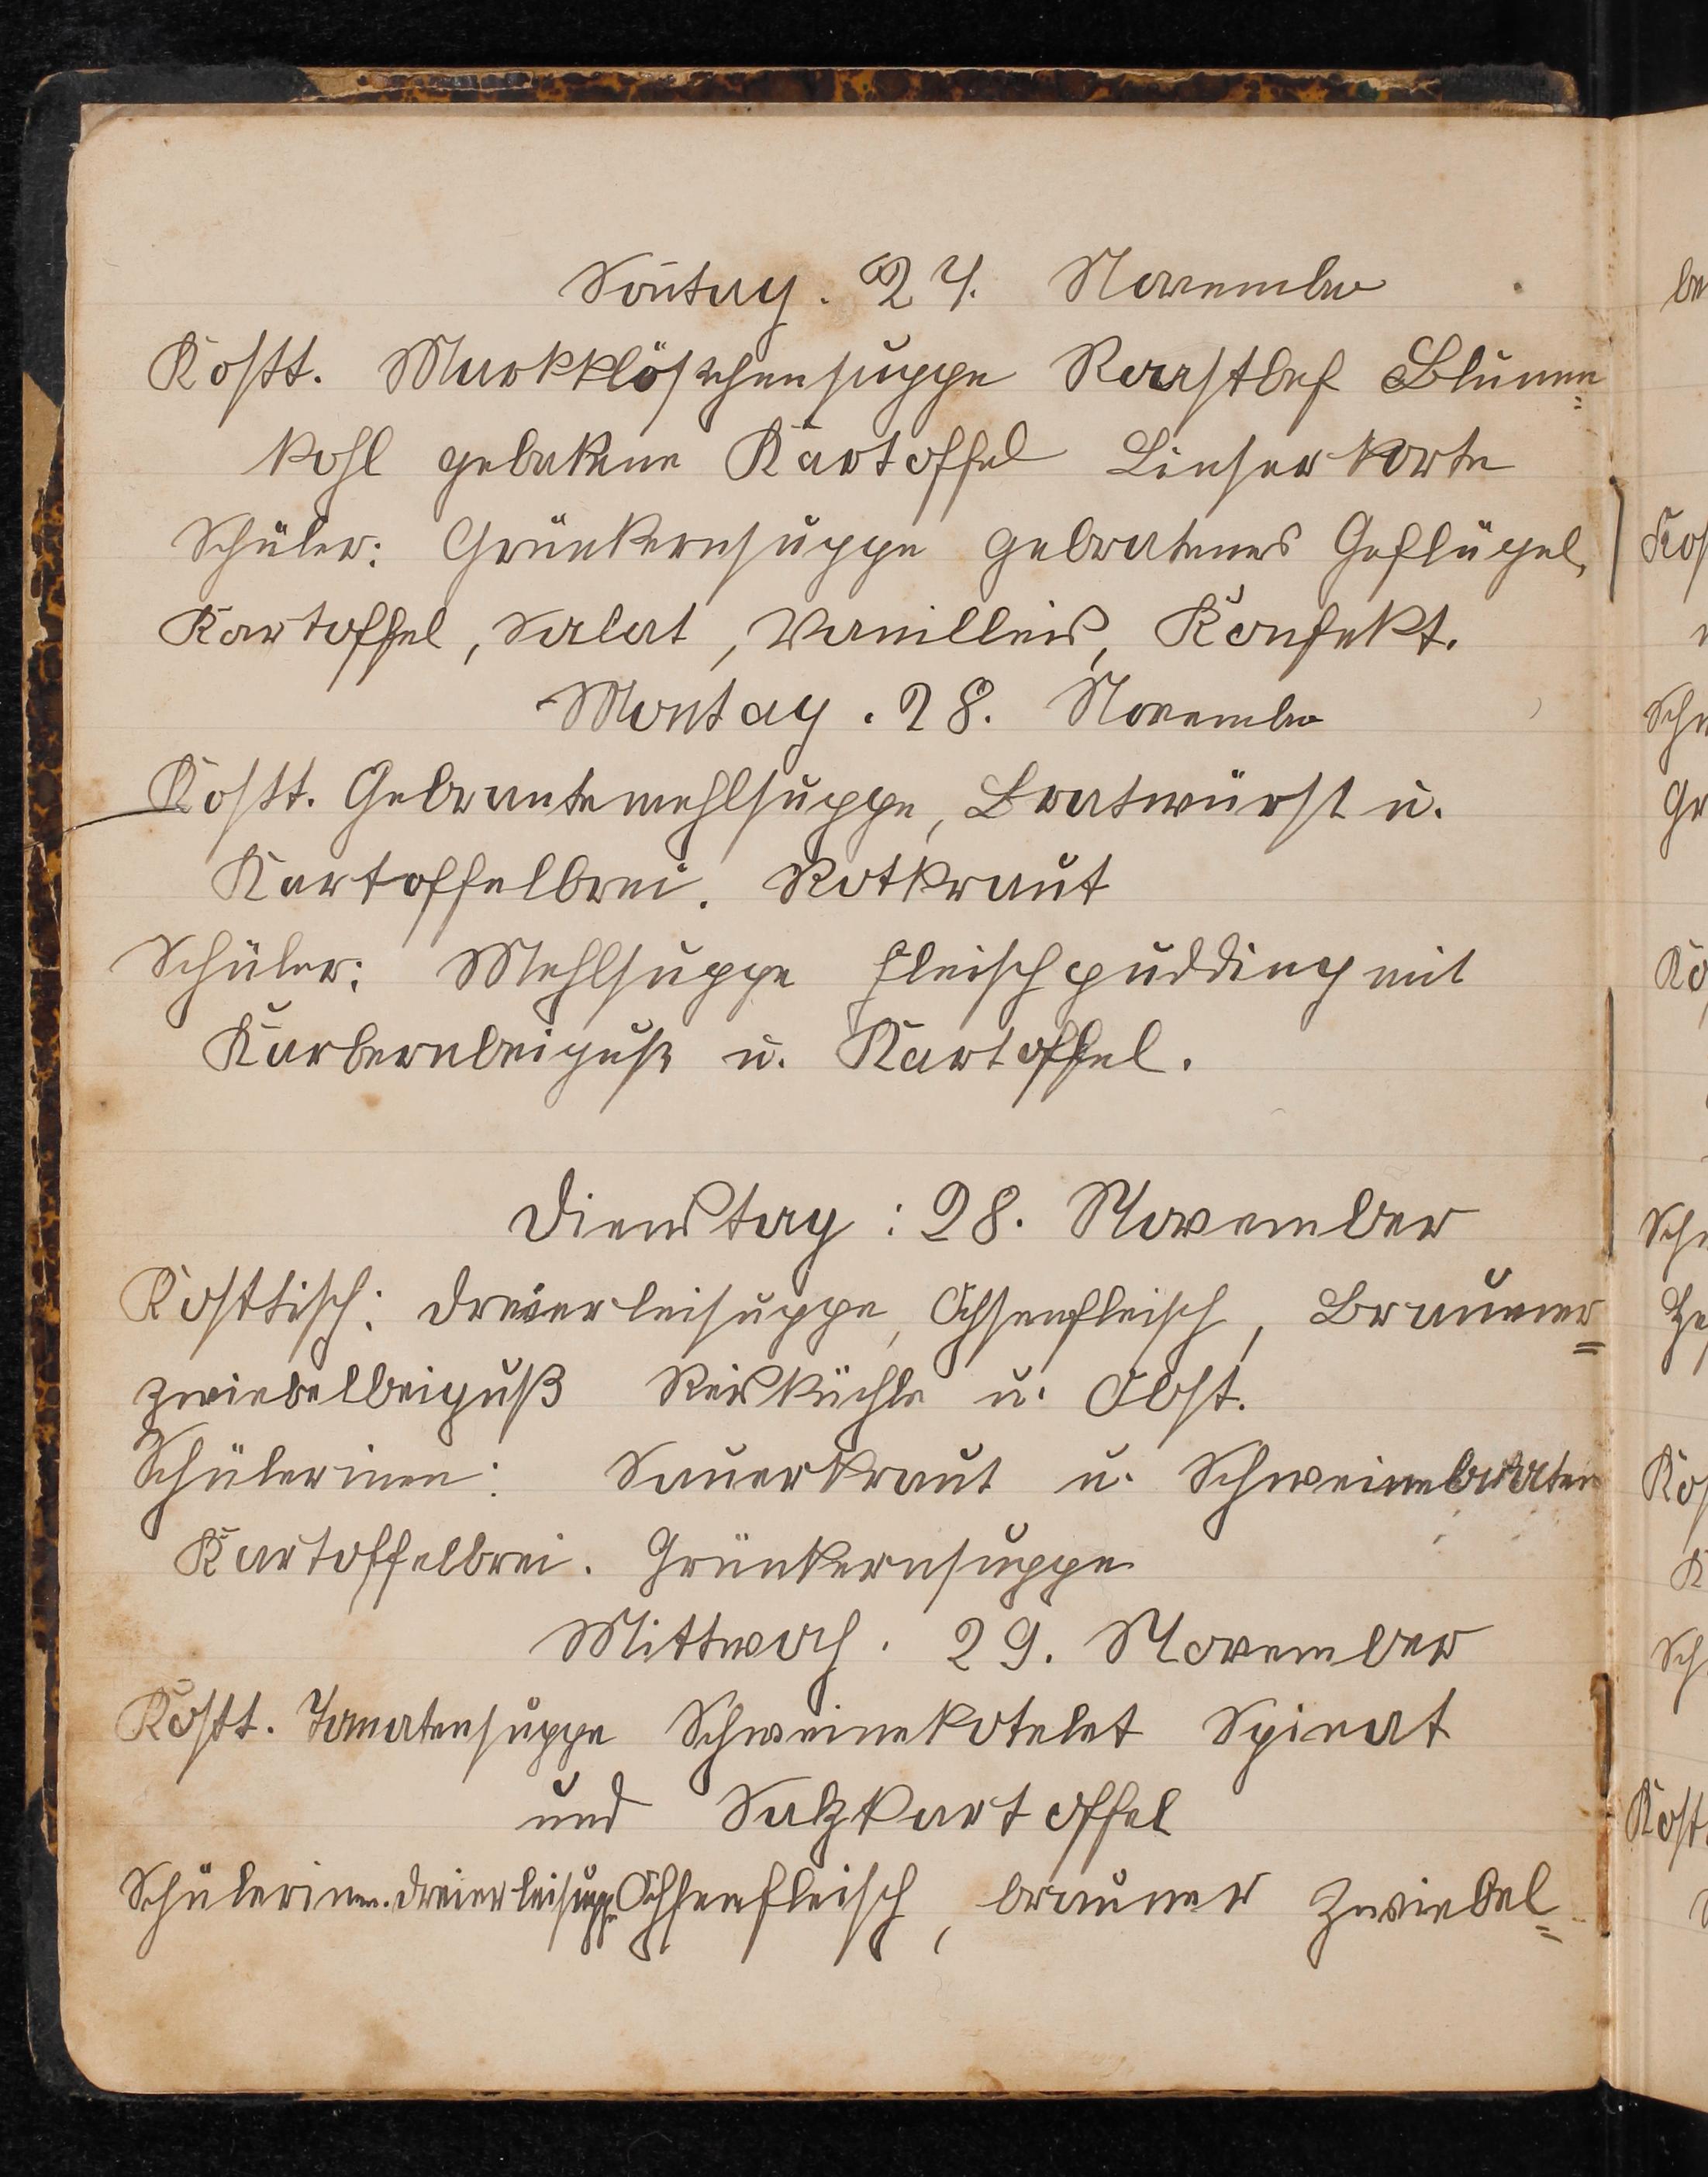 Son̄tag. 27. November
Kostt. Markklöschensuppe Roastbef Blumen=
kohl gebakene Kartoffel Linsertorte
Schüler: Grünkernsuppe gebratenes Geflügel,
Kartoffel, Salat, Vanilleeis, Konfekt.
Montag. 28. November
Kostt. Gebrantemehlsuppe, Bratwürst u.
Kartoffelbrei. Rotkraut
Schüler: Mehlsuppe Fleischpudding mit
Karbernbeiguß u. Kartoffel.
Dienstag: 28. November
Kosttisch: Dreierleisuppe, Ochsenfleisch, Brauner=
zwiebelbeiguß Reisküchle u. Obst.
Schülerinen: Sauerkraut u. Schweinebraten
Kartoffelbrei. Grünkernsuppe
Mittwoch. 29. November
Kostt. Tomatensuppe Schweinekotelet Spinat
und Salzkartoffel
Schülerinen. Dreierleisuppe Ochsenfleisch, brauner Zwiebel=